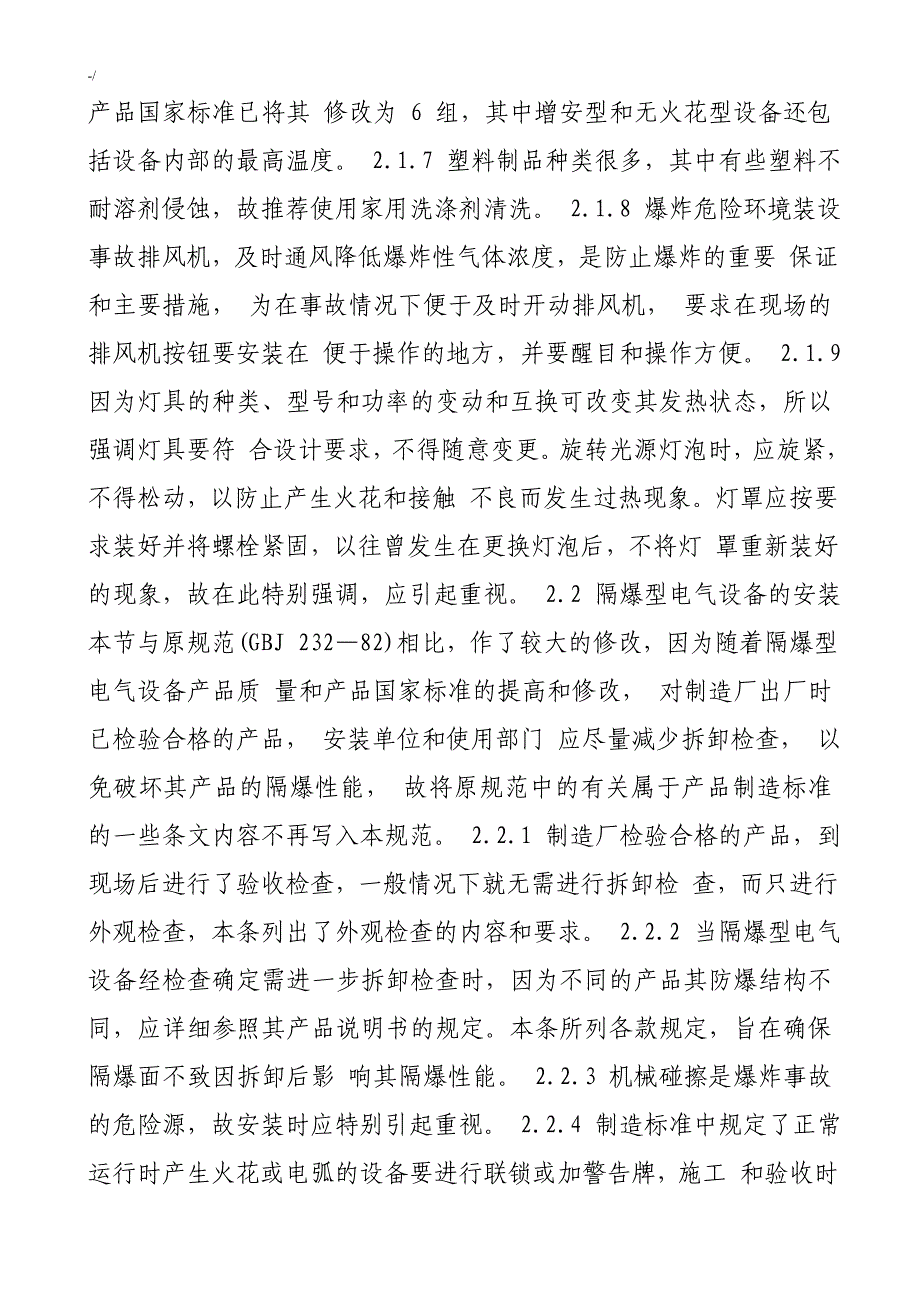 -/
产品国家标准已将其 修改为 6 组，其中增安型和无火花型设备还包
括设备内部的最高温度。 2.1.7 塑料制品种类很多，其中有些塑料不
耐溶剂侵蚀，故推荐使用家用洗涤剂清洗。 2.1.8 爆炸危险环境装设
事故排风机，及时通风降低爆炸性气体浓度，是防止爆炸的重要 保证
和主要措施， 为在事故情况下便于及时开动排风机， 要求在现场的
排风机按钮要安装在 便于操作的地方，并要醒目和操作方便。 2.1.9
因为灯具的种类、型号和功率的变动和互换可改变其发热状态，所以
强调灯具要符 合设计要求，不得随意变更。旋转光源灯泡时，应旋紧，
不得松动，以防止产生火花和接触 不良而发生过热现象。灯罩应按要
求装好并将螺栓紧固，以往曾发生在更换灯泡后，不将灯 罩重新装好
的现象，故在此特别强调，应引起重视。 2.2 隔爆型电气设备的安装
本节与原规范(GBJ 232—82)相比，作了较大的修改，因为随着隔爆型
电气设备产品质 量和产品国家标准的提高和修改， 对制造厂出厂时
已检验合格的产品， 安装单位和使用部门 应尽量减少拆卸检查， 以
免破坏其产品的隔爆性能， 故将原规范中的有关属于产品制造标准
的一些条文内容不再写入本规范。 2.2.1 制造厂检验合格的产品，到
现场后进行了验收检查，一般情况下就无需进行拆卸检 查，而只进行
外观检查，本条列出了外观检查的内容和要求。 2.2.2 当隔爆型电气
设备经检查确定需进一步拆卸检查时，因为不同的产品其防爆结构不
同，应详细参照其产品说明书的规定。本条所列各款规定，旨在确保
隔爆面不致因拆卸后影 响其隔爆性能。 2.2.3 机械碰擦是爆炸事故
的危险源，故安装时应特别引起重视。 2.2.4 制造标准中规定了正常
运行时产生火花或电弧的设备要进行联锁或加警告牌，施工 和验收时